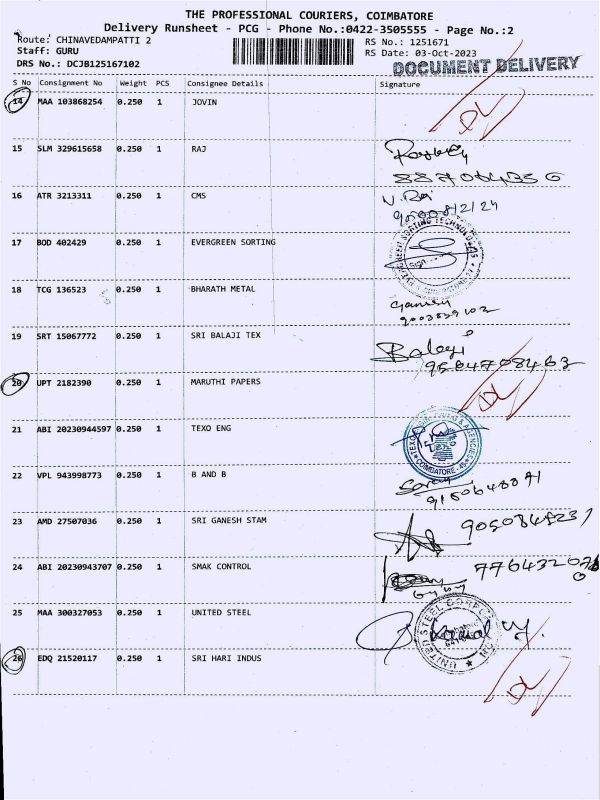 THE PROFESSIONAL COURIERS, COIMBATORE
Delivery Runsheet - PCG - Phone No.:0422-3505555 - Page No.:2
Route: CHINAVEDAMPATTI 2 RS No.: 1251671
Staff: GURU RS Date: 03-Oct-2023
DRS No.: DCJB125167102 DOCUMENT DELIVERY
S No Consignment No Weight PCS Consignee Details Signature
14 MAA 103868254 0.250 1 JOVIN DL
15 SLM 329615658 0.250 1 RAJ
16 ATR 3213311 0.250 1 CMS
17 BOD 402429 0.250 1 EVERGREEN SORTING
EVERGREEN SORTING TECHNOLOGIES
Sign
18 TCG 136523 0.250 1 BHARATH METAL
Ganesh
19 SRT 15067772 0.250 1 SRI BALAJI TEX
Balaji
9504708463
20 UPT 2182390 0.250 1 MARUTHI PAPERS DL
21 ABI 20230944597 0.250 1 TEXO ENG
COIMBATORE
22 VPL 943998773 0.250 1 B AND B
23 AMD 27507036 0.250 1 SRI GANESH STAM
24 ABI 20230943707 0.250 1 SMAK CONTROL
25 MAA 300327053 0.250 1 UNITED STEEL
UNITED STEEL CORPORATION
26 EDQ 21520117 0.250 1 SRI HARI INDUS DL